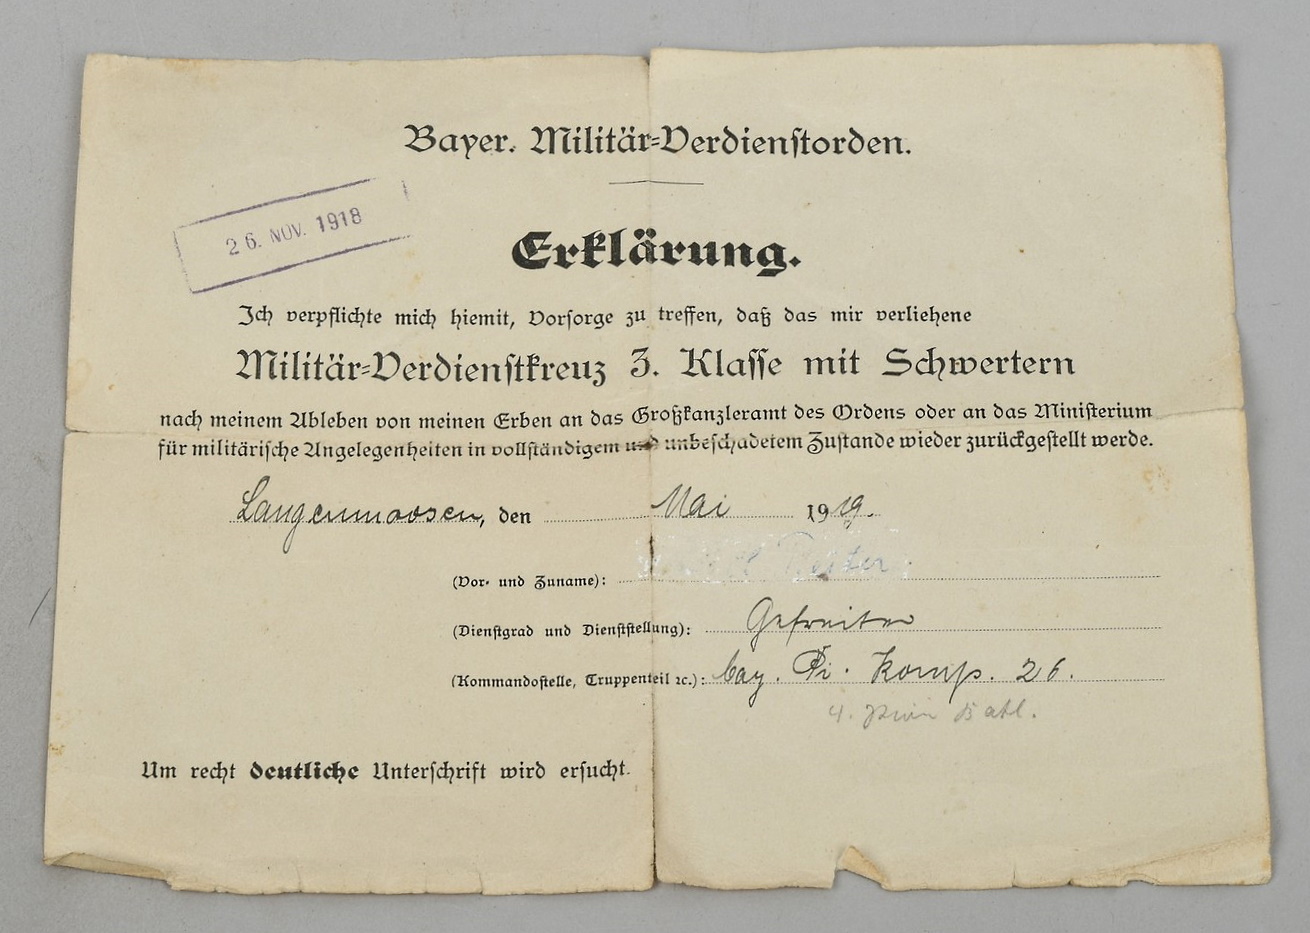 Bayer. Militär-Verdienstorden.
26. NOV. 1918
Erklärung.
Ich verpflichte mich hiemit, Vorsorge zu treffen, daß das mir verliehene
Militär-Verdienstkreuz 3. Klasse mit Schwertern
nach meinem Ableben von meinen Erben an das Großkanzleramt des Ordens oder an das Ministerium
für militärische Angelegenheiten in vollständigem und unbeschadetem Zustande wieder zurückgestellt werde.
Langenmoosen, den Mai 1919.
(Vor- und Zuname):
(Dienstgrad und Dienststellung): Gefreiter
(Kommandostelle, Truppenteil ꝛc.): bay. Pi. Komp. 26.
4. Batl.
Um recht deutliche Unterschrift wird ersucht.